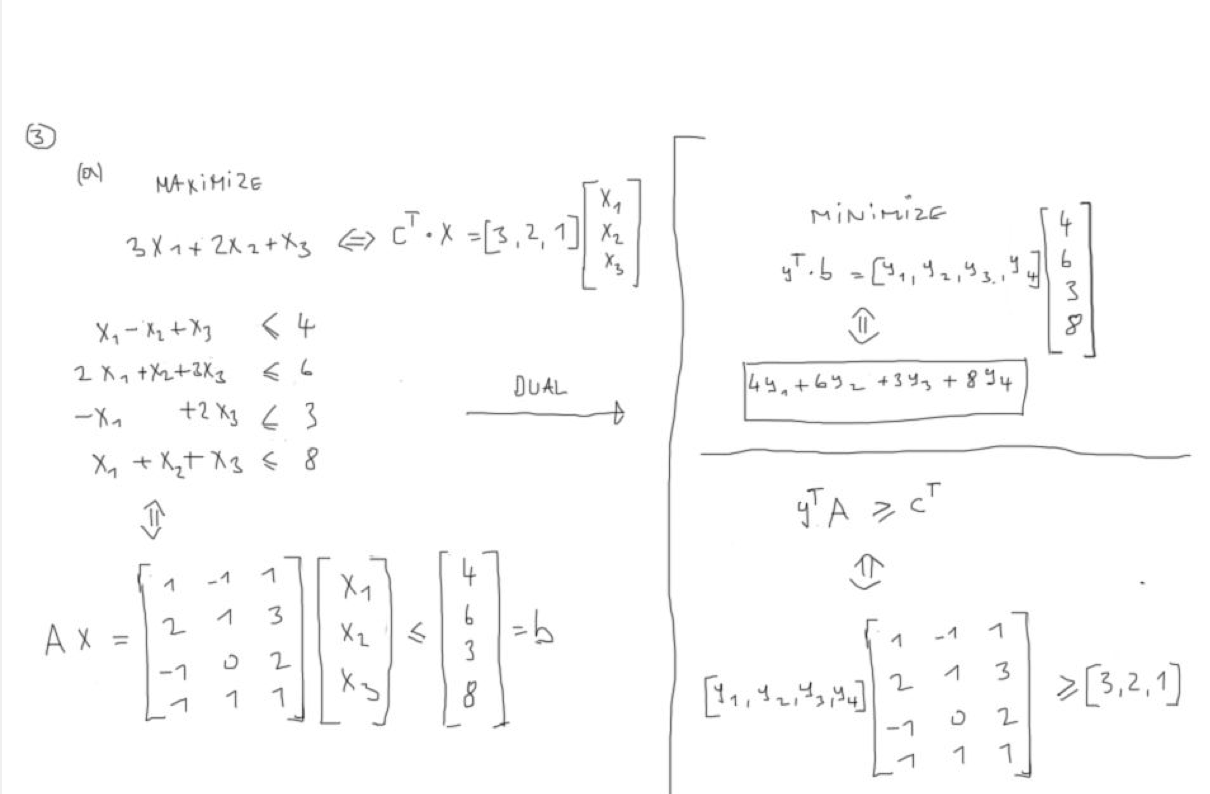 ③
(a) MAXIMIZE
3x₁ + 2x₂ + x₃ ⇔ Cᵀ · X = [3, 2, 1] [x₁ x₂ x₃]
x₁ - x₂ + x₃ ≤ 4
2x₁ + x₂ + 3x₃ ≤ 6
-x₁ + 2x₃ ≤ 3
x₁ + x₂ + x₃ ≤ 8
⇕
A X = [1 -1 1
2 1 3
-1 0 2
1 1 1] [x₁ x₂ x₃] ≤ [4 6 3 8] = b
DUAL
MINIMIZE
yᵀ · b = [y₁, y₂, y₃, y₄] [4 6 3 8]
⇕
4y₁ + 6y₂ + 3y₃ + 8y₄
yᵀ A ≥ Cᵀ
⇕
[y₁, y₂, y₃, y₄] [1 -1 1
2 1 3
-1 0 2
1 1 1] ≥ [3, 2, 1]